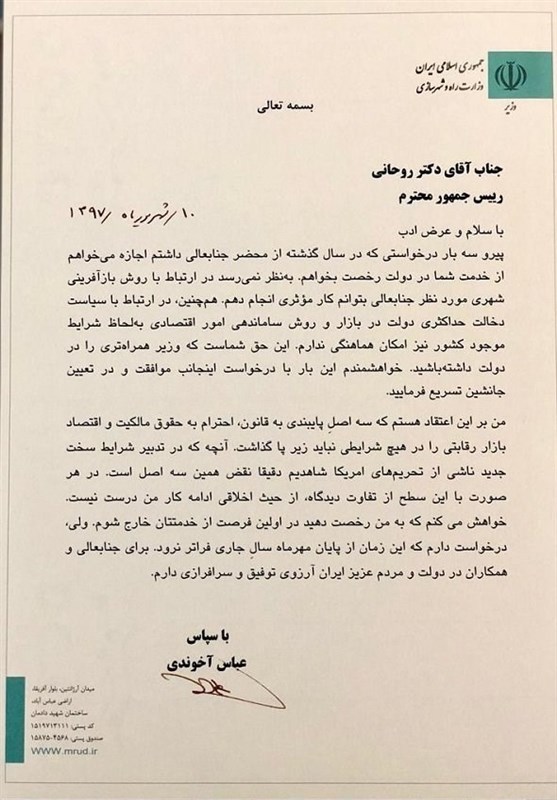 جمهوری اسلامی ایران
وزارت راه و شهرسازی
وزیر
بسمه تعالی
جناب آقای دکتر روحانی
رییس جمهور محترم
۱۰/شهریورماه/۱۳۹۷
با سلام و عرض ادب
پیرو سه بار درخواستی که در سال گذشته از محضر جنابعالی داشتم اجازه می‌خواهم
از خدمت شما در دولت رخصت بخواهم. به‌نظر نمی‌رسد در ارتباط با روش بازآفرینی
شهری مورد نظر جنابعالی بتوانم کار مؤثری انجام دهم. هم‌چنین، در ارتباط با سیاست
دخالت حداکثری دولت در بازار و روش ساماندهی امور اقتصادی به‌لحاظ شرایط
موجود کشور نیز امکان هماهنگی ندارم. این حق شماست که وزیر همراه‌تری را در
دولت داشته‌باشید. خواهشمندم این بار با درخواست اینجانب موافقت و در تعیین
جانشین تسریع فرمایید.
من بر این اعتقاد هستم که سه اصلِ پایبندی به قانون، احترام به حقوق مالکیت و اقتصاد
بازار رقابتی را در هیچ شرایطی نباید زیر پا گذاشت. آنچه که در تدبیر شرایط سخت
جدید ناشی از تحریم‌های امریکا شاهدیم دقیقا نقض همین سه اصل است. در هر
صورت با این سطح از تفاوت دیدگاه، از حیث اخلاقی ادامه کار من درست نیست.
خواهش می کنم که به من رخصت دهید در اولین فرصت از خدمتتان خارج شوم. ولی،
درخواست دارم که این زمان از پایان مهرماه سالِ جاری فراتر نرود. برای جنابعالی و
همکاران در دولت و مردم عزیز ایران آرزوی توفیق و سرافرازی دارم.
با سپاس
عباس آخوندی
میدان آرژانتین، بلوار آفریقا،
اراضی عباس آباد،
ساختمان شهید دادمان
کد پستی: ۱۵۱۹۷۱۳۱۱۱
صندوق پستی: ۴۵۶۸-۱۵۸۷۵
www.mrud.ir